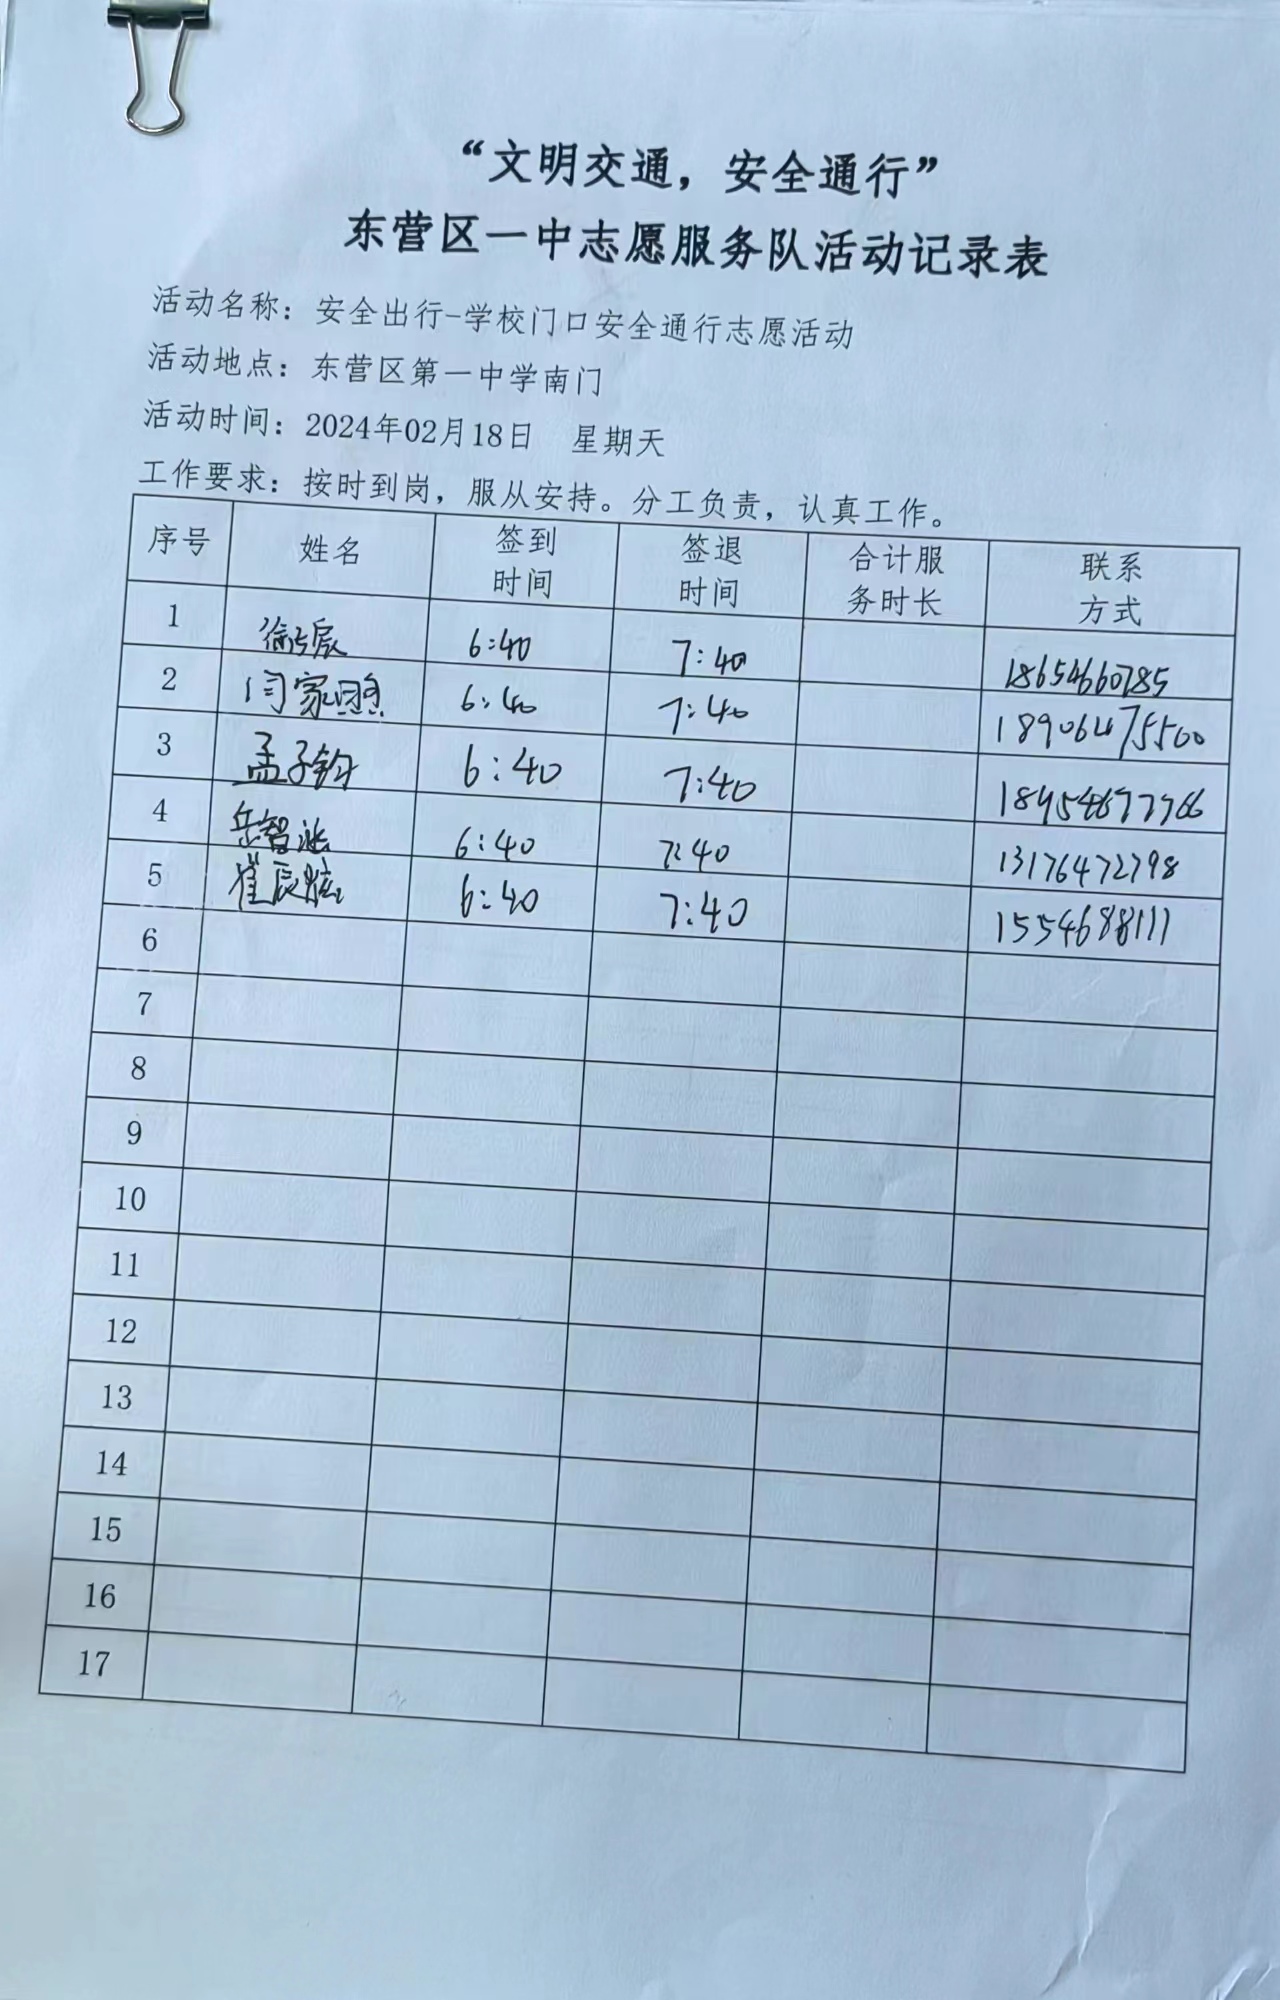 “文明交通，安全通行”
东营区一中志愿服务队活动记录表
活动名称：安全出行-学校门口安全通行志愿活动
活动地点：东营区第一中学南门
活动时间：2024年02月18日 星期天
工作要求：按时到岗，服从安持。分工负责，认真工作。
序号 姓名 签到时间 签退时间 合计服务时长 联系方式
1 6:40 7:40 18654660785
2 闫家 6:40 7:40 18906475500
3 孟子钧 6:40 7:40 18454677766
4 岳智 6:40 7:40 13176472798
5 崔辰 6:40 7:40 15546888111
6
7
8
9
10
11
12
13
14
15
16
17